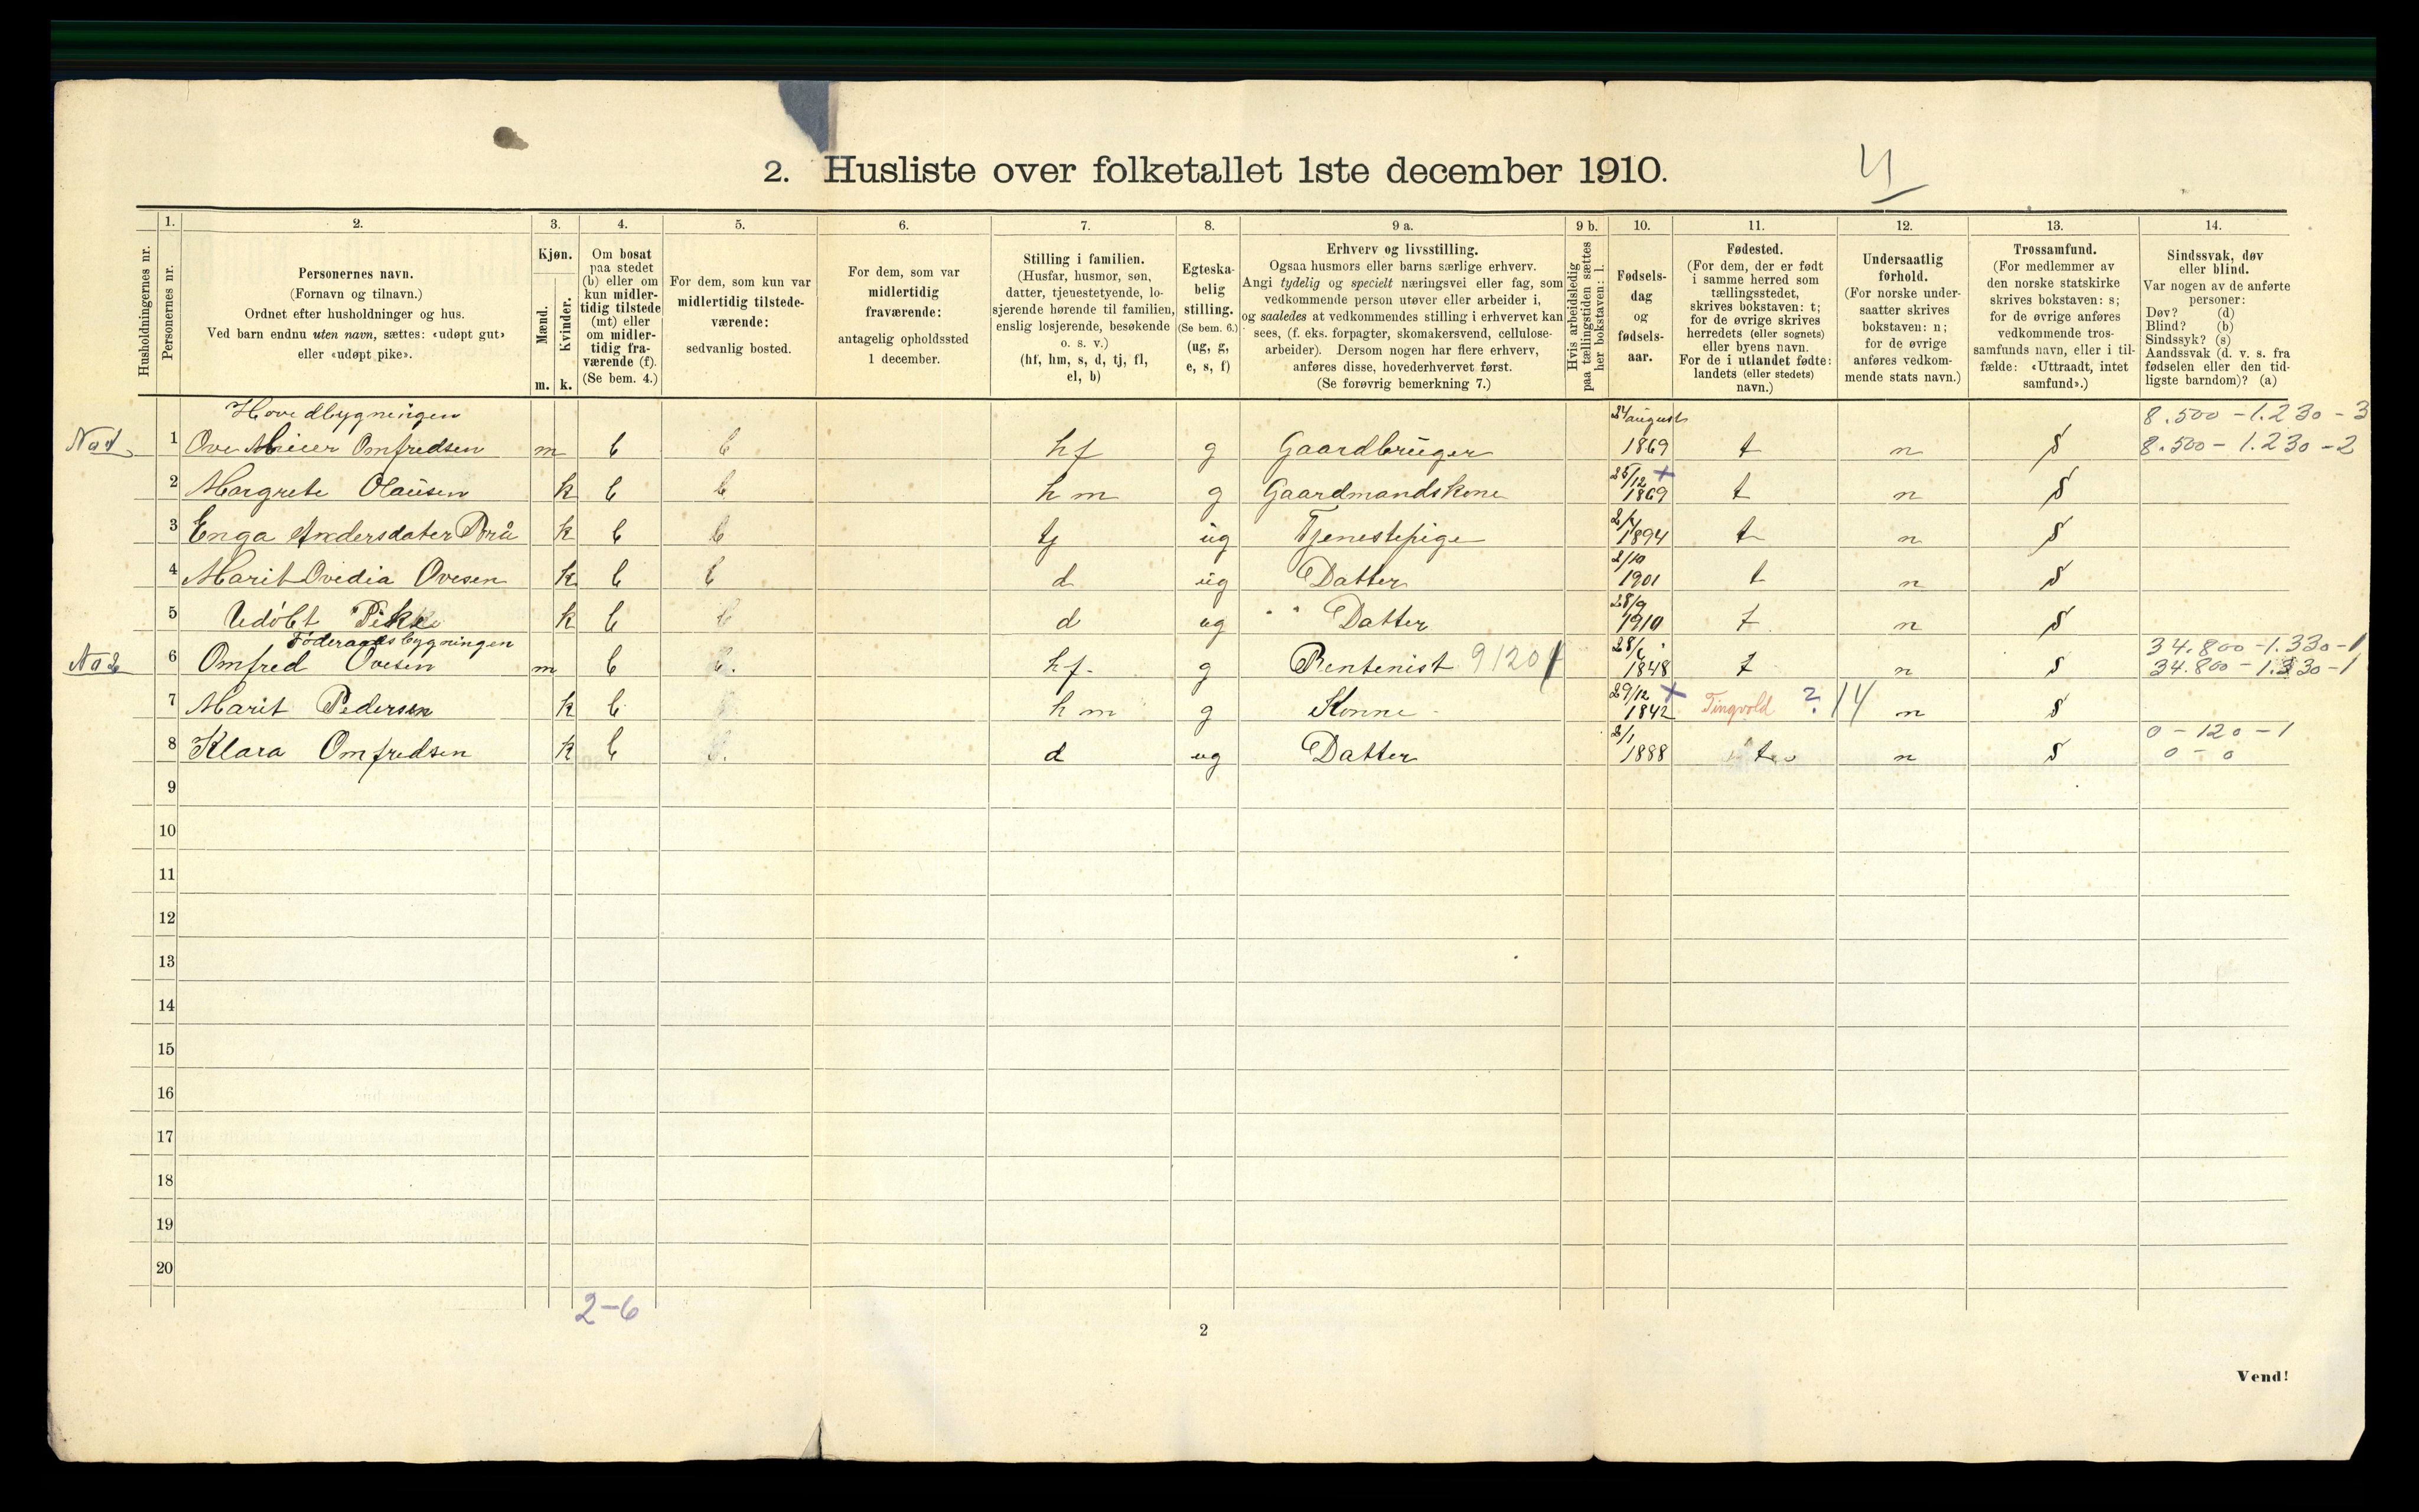 2. Husliste over folketallet 1ste december 1910.
Husholdningernes nr.
1.
Personernes nr.
2.
Personernes navn.
(Fornavn og tilnavn.)
Ordnet efter husholdninger og hus.
Ved barn endnu uten navn, sættes: «udøpt gut»
eller «udøpt pike».
3.
Kjøn.
Mænd.
Kvinder.
m. k.
4.
Om bosat
paa stedet
(b) eller om
kun midler-
tidig tilstede
(mt) eller
om midler-
tidig fra-
værende (f).
(Se bem. 4.)
5.
For dem, som kun var
midlertidig tilstede-
værende:
sedvanlig bosted.
6.
For dem, som var
midlertidig
fraværende:
antagelig opholdssted
1 december.
7.
Stilling i familien.
(Husfar, husmor, søn,
datter, tjenestetyende, lo-
sjerende hørende til familien,
enslig losjerende, besøkende
o. s. v.)
(hf, hm, s, d, tj, fl,
el, b)
8.
Egteska-
belig
stilling.
(Se bem. 6.)
(ug, g,
e, s, f)
9 a.
Erhverv og livsstilling.
Ogsaa husmors eller barns særlige erhverv.
Angi tydelig og specielt næringsvei eller fag, som
vedkommende person utøver eller arbeider i,
og saaledes at vedkommendes stilling i erhvervet kan
sees, (f. eks. forpagter, skomakersvend, cellulose-
arbeider). Dersom nogen har flere erhverv,
anføres disse, hovederhvervet først.
(Se forøvrig bemerkning 7.)
9 b.
Hvis arbeidsledig
paa tællingstiden sættes
her bokstaven: l.
10.
Fødsels-
dag
og
fødsels-
aar.
11.
Fødested.
(For dem, der er født
i samme herred som
tællingsstedet,
skrives bokstaven: t;
for de øvrige skrives
herredets (eller sognets)
eller byens navn.
For de i utlandet fødte:
landets (eller stedets)
navn.)
12.
Undersaatlig
forhold.
(For norske under-
saatter skrives
bokstaven: n;
for de øvrige
anføres vedkom-
mende stats navn.)
13.
Trossamfund.
(For medlemmer av
den norske statskirke
skrives bokstaven: s;
for de øvrige anføres
vedkommende tros-
samfunds navn, eller i til-
fælde: «Uttraadt, intet
samfund».)
14.
Sindssvak, døv
eller blind.
Var nogen av de anførte
personer:
Døv? (d)
Blind? (b)
Sindssyk? (s)
Aandssvak (d. v. s. fra
fødselen eller den tid-
ligste barndom)? (a)
Hovedbygningen 24 august 8.500 - 1.230 - 3
No 1 1 Ove Meier Omfredsen m b b hf g Gaardbruger 1869 t n s 8.500 - 1.230 - 2
2 Margrete Olausen k b b hm g Gaardmandskone 25/12 1869 t n s
3 Enga Andersdater Brå k b b tj ug Tjenestepige 2/4 1894 t n s
4 Marit Ovedia Ovesen k b b d ug Datter 2/10 1901 t n s
5 Udöbt Pike k b b d ug " " Datter 28/9 1910 t n s
Föderaadsbygningen 34.800 - 1.330 - 1
No 2 6 Omfred Ovesen m b b. hf. g Rentenist 9120 1848 t n s 34.800 - 1.330 - 1
7 Marit Pedersen k b hm g Konne 29/12 1842 Tingvold ? 14 n s
0 - 120 - 1
8 Klara Omfredsen k b b. d ug Datter 2/1 1888 t n s 0 - 0
9
10
11
12
13
14
15
16
17
18
19
20
2-6
2
Vend!